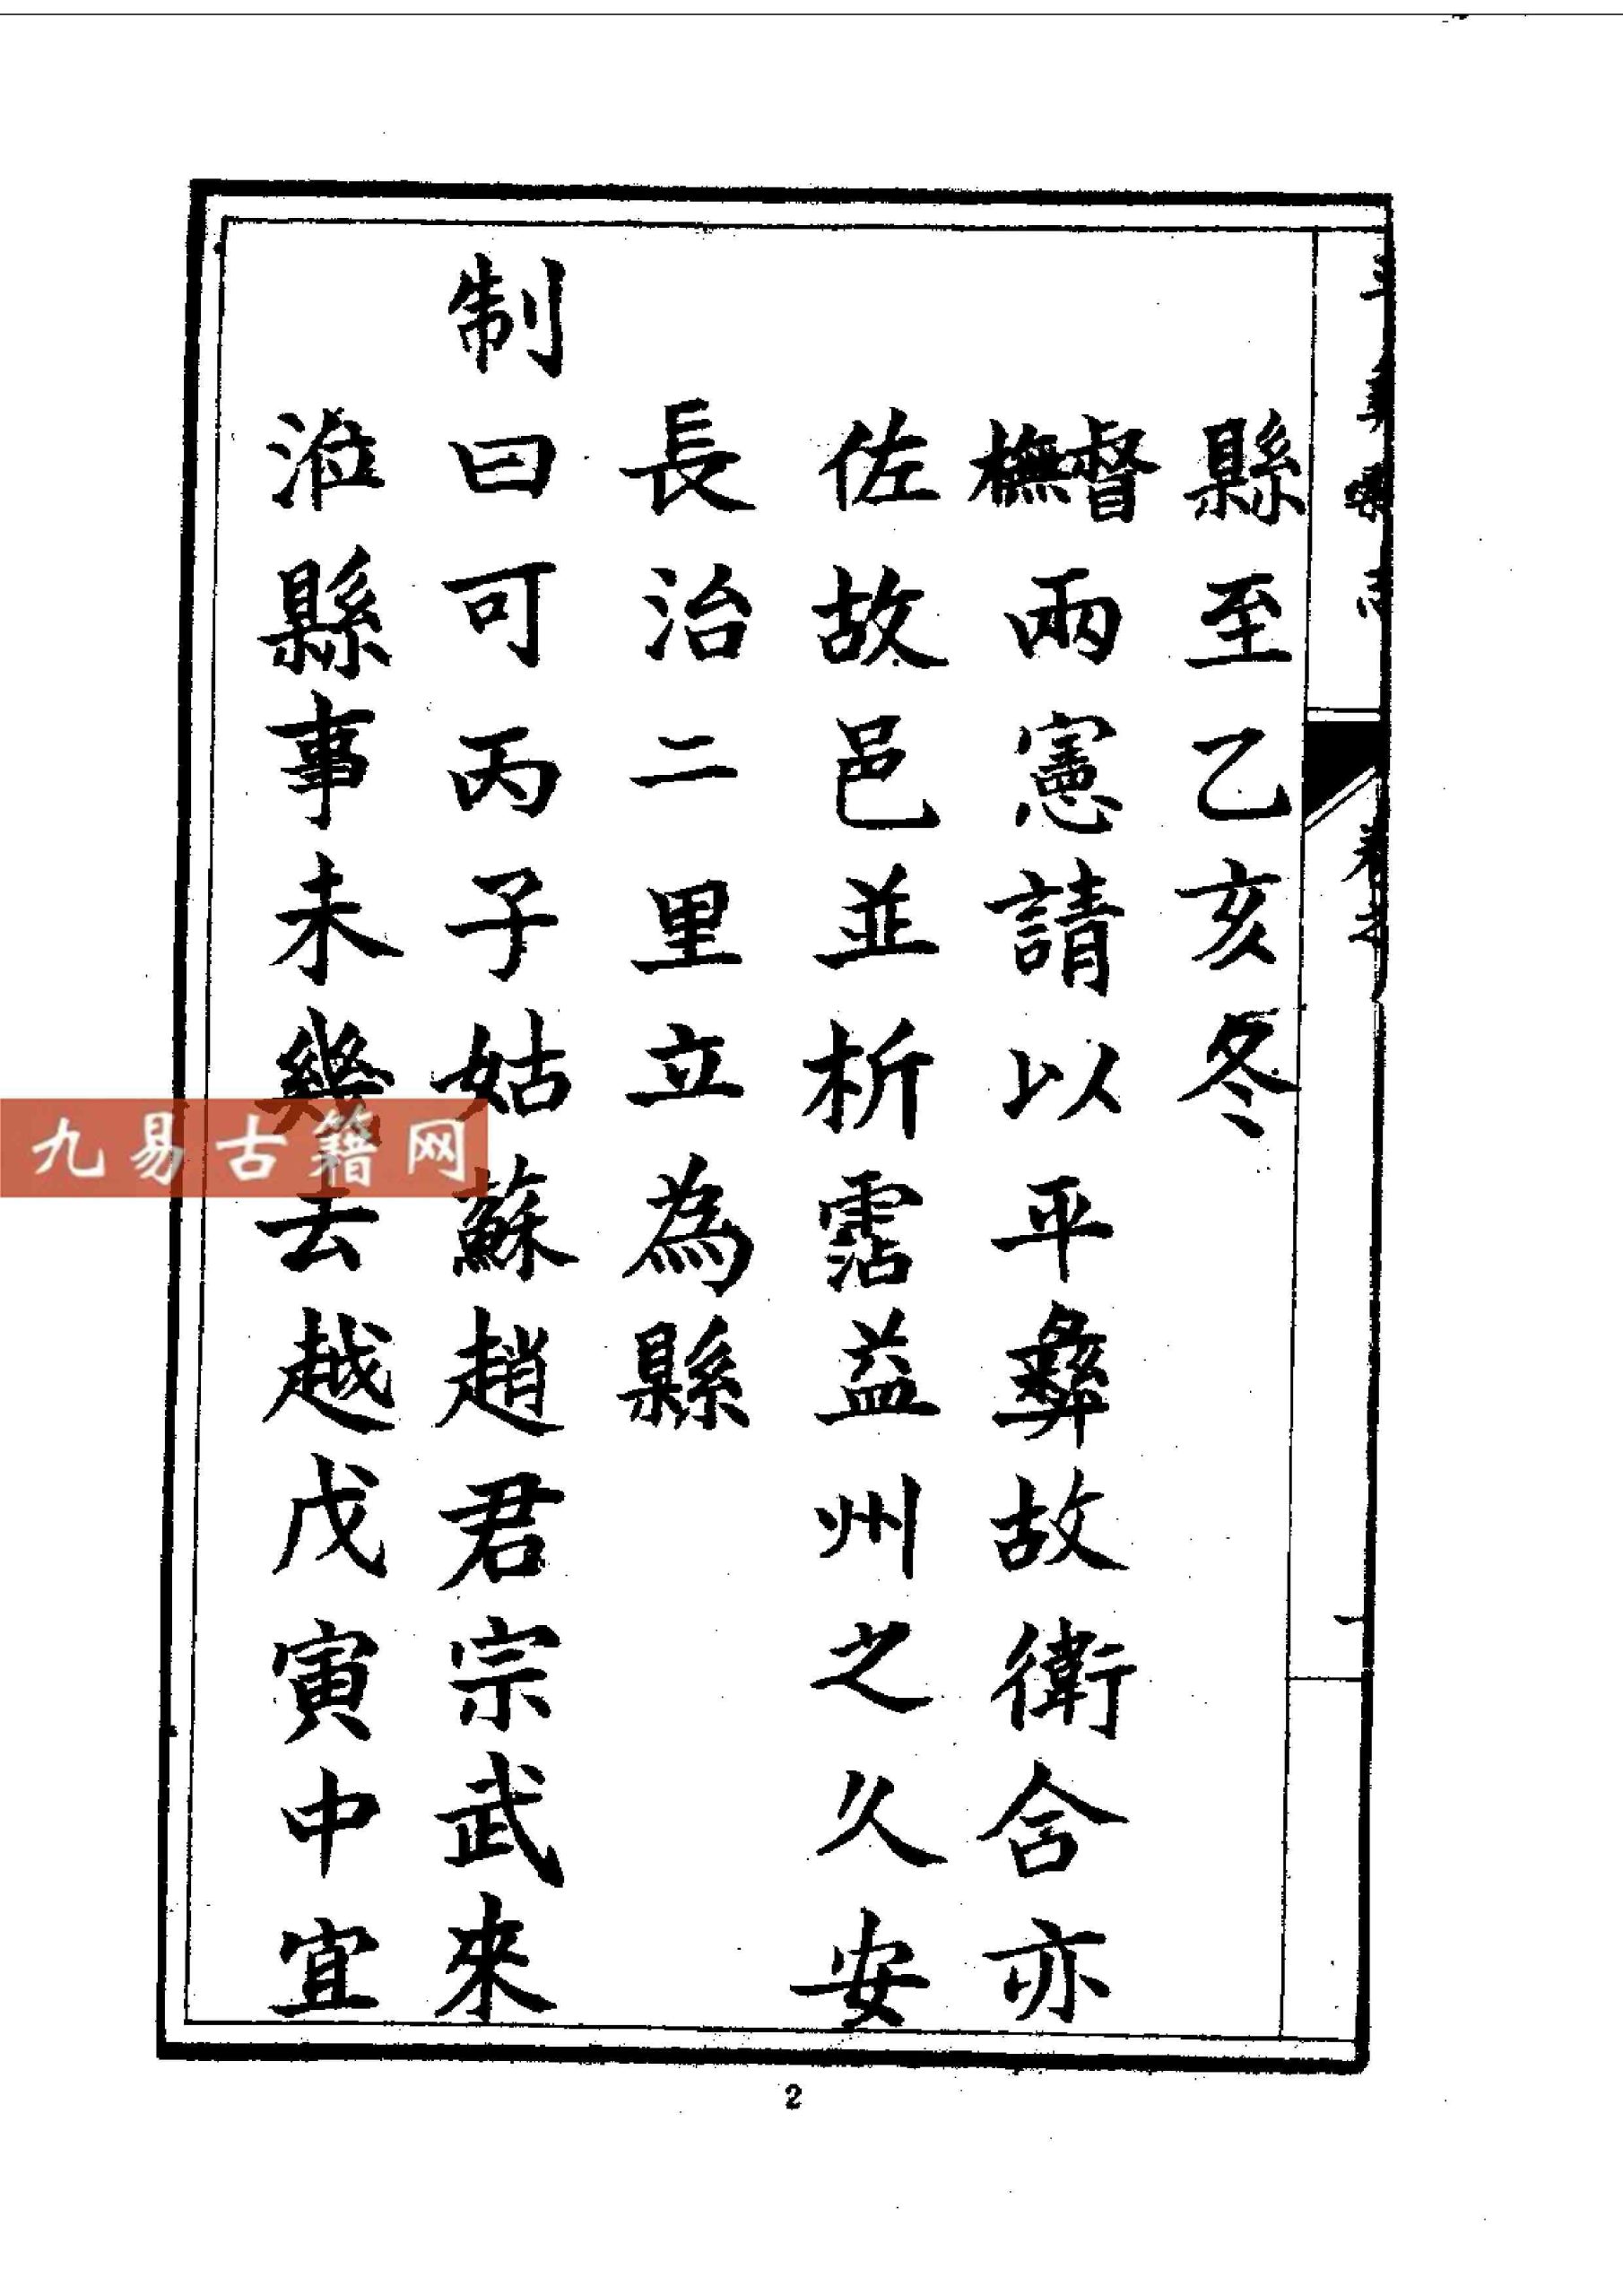 縣至乙亥冬
督撫兩憲請以平彝故衛合亦
佐故邑並析霑益州之久安
長治二里立為縣
制曰可丙子姑蘇趙君宗武來
涖縣事未幾去越戊寅中宜
平彝縣志
卷之
一
2
九易古籍网